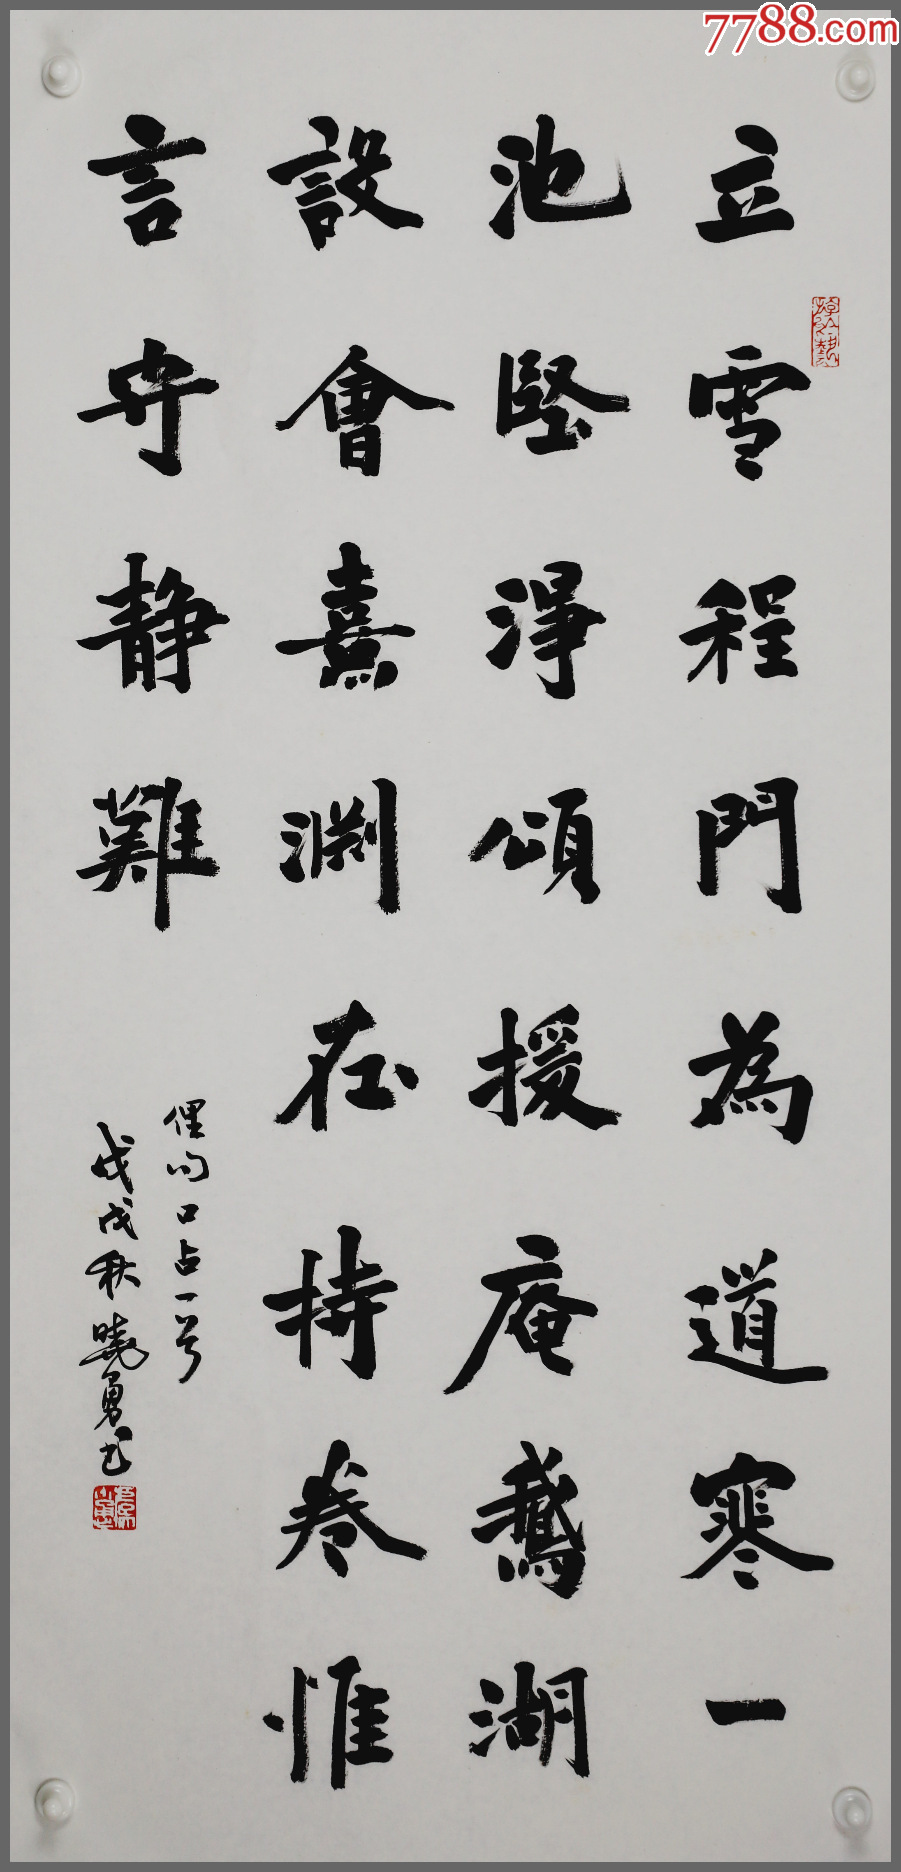 立雪程門為道寒一
池堅淨頌援庵鵝湖
設會熹淵在持卷惟
言守静難
俚句口占一首
戊戌秋曉勇书
7788.com